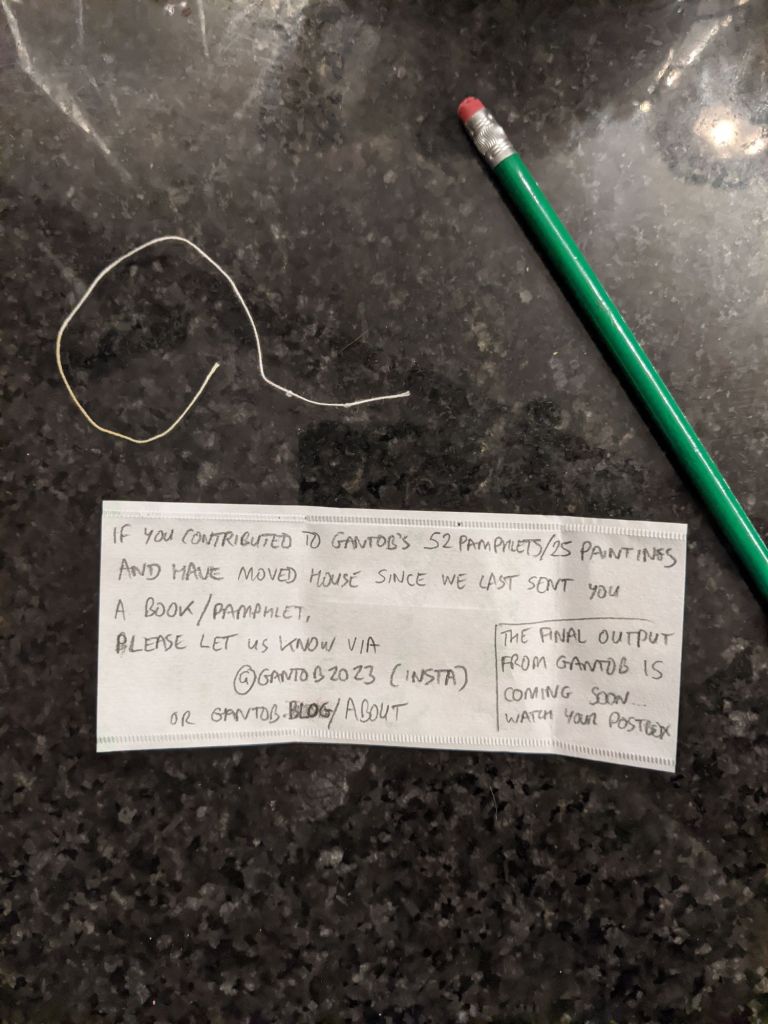 IF YOU CONTRIBUTED TO GANTOB'S 52 PAMPHLETS/25 PAINTINGS
AND HAVE MOVED HOUSE SINCE WE LAST SENT YOU
A BOOK/PAMPHLET,
PLEASE LET US KNOW VIA
@GANTOB2023 (INSTA)
OR GANTOB.BLOG/ABOUT
THE FINAL OUTPUT
FROM GANTOB IS
COMING SOON...
WATCH YOUR POSTBOX